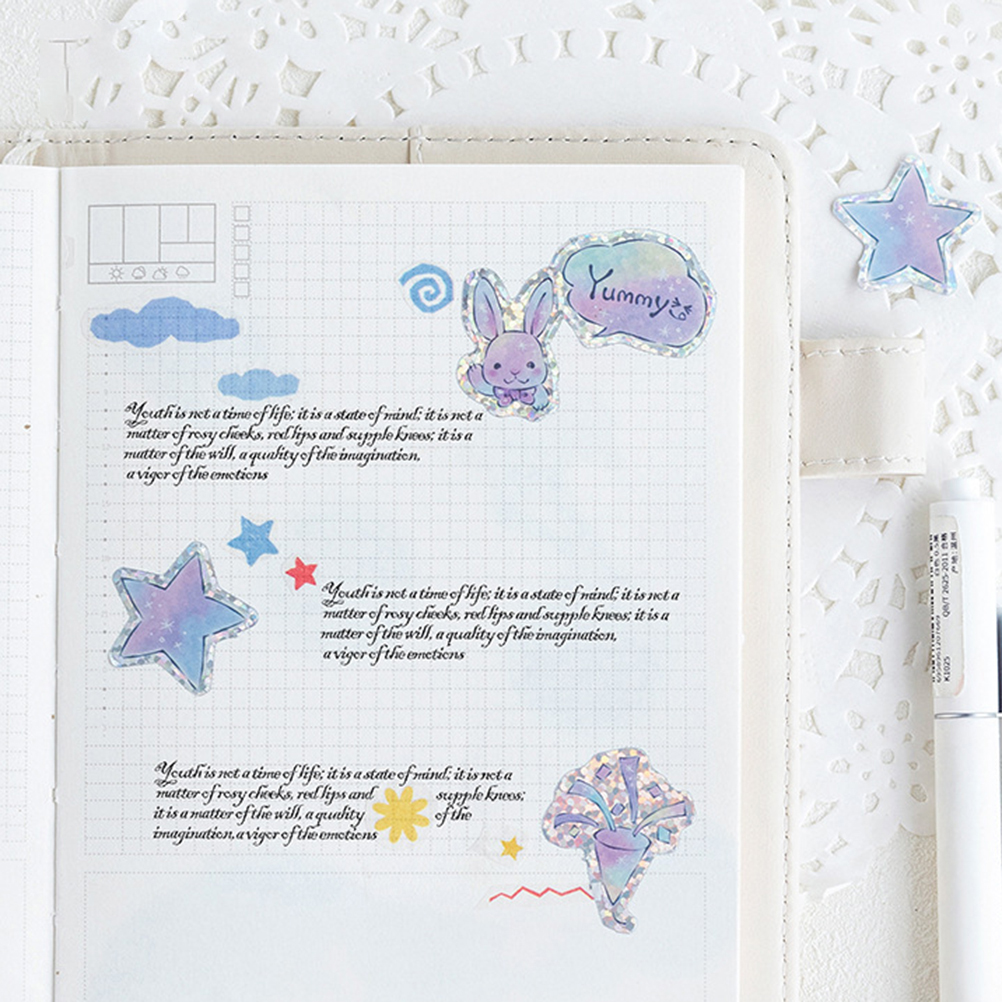 Yummy
Youth is not a time of life; it is a state of mind; it is not a
matter of rosy cheeks, red lips and supple knees; it is a
matter of the will, a quality of the imagination,
a vigor of the emotions
Youth is not a time of life; it is a state of mind; it is not a
matter of rosy cheeks, red lips and supple knees; it is a
matter of the will, a quality of the imagination,
a vigor of the emotions
Youth is not a time of life; it is a state of mind; it is not a
matter of rosy cheeks, red lips and supple knees;
it is a matter of the will, a quality of the
imagination, a vigor of the emotions
QB/T 2625-2011 合格
产地:温州
K1025